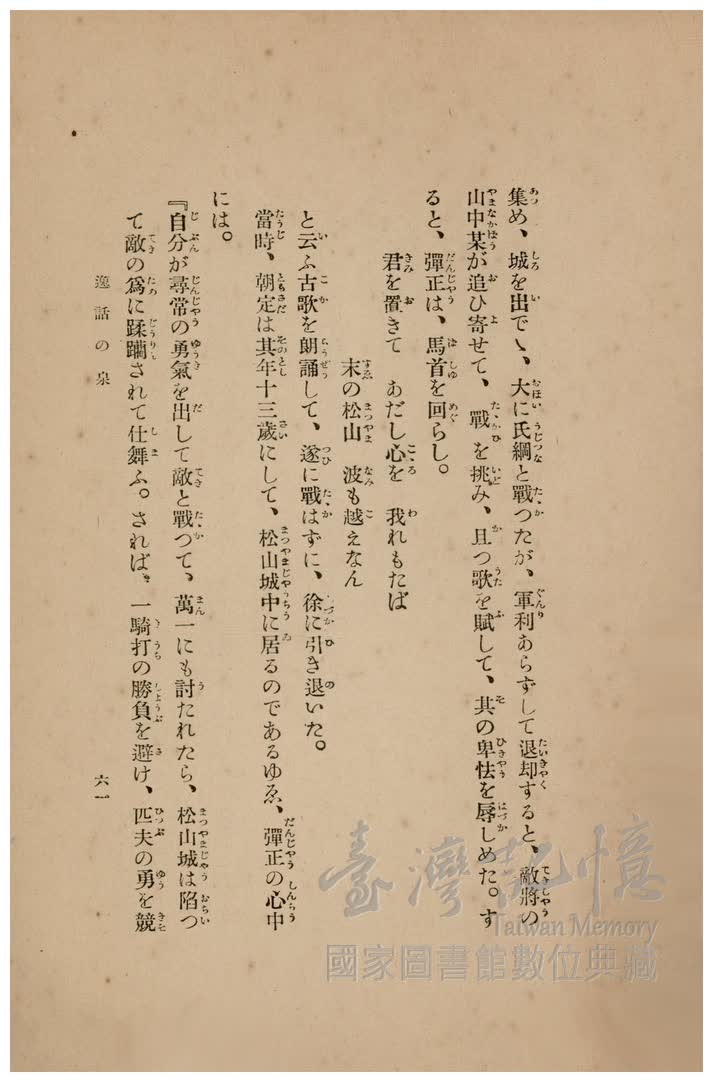 集め、城を出でゝ、大に氏綱と戰つたが、軍利あらずして退却すると、敵將の
山中某が追ひ寄せて、戰を挑み、且つ歌を賦して、其の卑怯を辱しめた。す
ると、彈正は、馬首を回らし。
君を置きて　あだし心を　我れもたば
末の松山　波も越えなん
と云ふ古歌を朗誦して、遂に戰はずに、徐に引き退いた。
當時、朝定は其年十三歲にして、松山城中に居るのであるゆゑ、彈正の心中
には。
『自分が尋常の勇氣を出して敵と戰つて、萬一にも討たれたら、松山城は陷つ
て敵の爲に蹂躙されて仕舞ふ。されば、一騎打の勝負を避け、匹夫の勇を競
逸話の泉
六一
臺灣記憶
Taiwan Memory
國家圖書館數位典藏